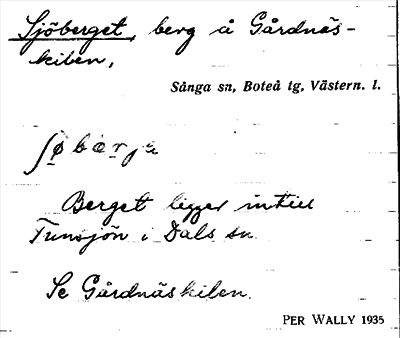 Sjöberget, berg å Gårdnäs-
kilen,
Sånga sn, Boteå tg, Västern. l.
Berget ligger intill
Tunsjön i Dals sn
Se Gårdnäskilen.
PER WALLY 1935